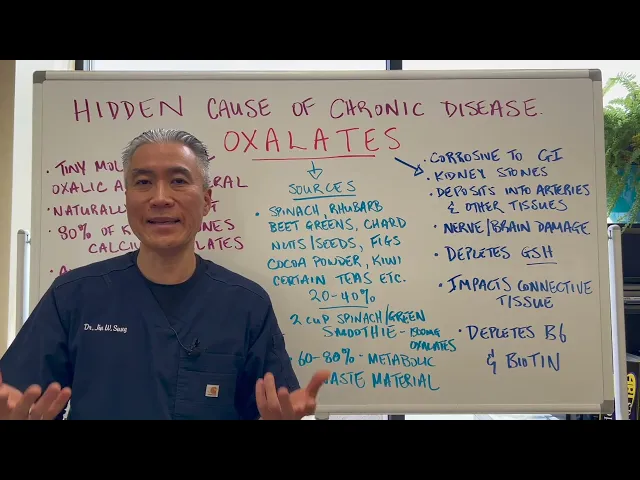 HIDDEN CAUSE OF CHRONIC DISEASE.
OXALATES
• TINY
OXALIC
• NATURALLY
• 80% OF
CALCIUM OXALATES
SOURCES
• SPINACH, RHUBARB
BEET GREENS, CHARD
NUTS/SEEDS, FIGS
COCOA POWDER, KIWI
CERTAIN TEAS ETC.
20-40%
2 CUP SPINACH/GREEN
SMOOTHIE - 1500mg
OXALATES
• 60-80% - METABOLIC
WASTE MATERIAL
• CORROSIVE TO GI
• KIDNEY STONES
• DEPOSITS INTO ARTERIES
& OTHER TISSUES
• NERVE/BRAIN DAMAGE
• DEPLETES GSH
• IMPACTS CONNECTIVE
TISSUE
• DEPLETES B6
& BIOTIN
Dr. Jin W. Sung
carhartt